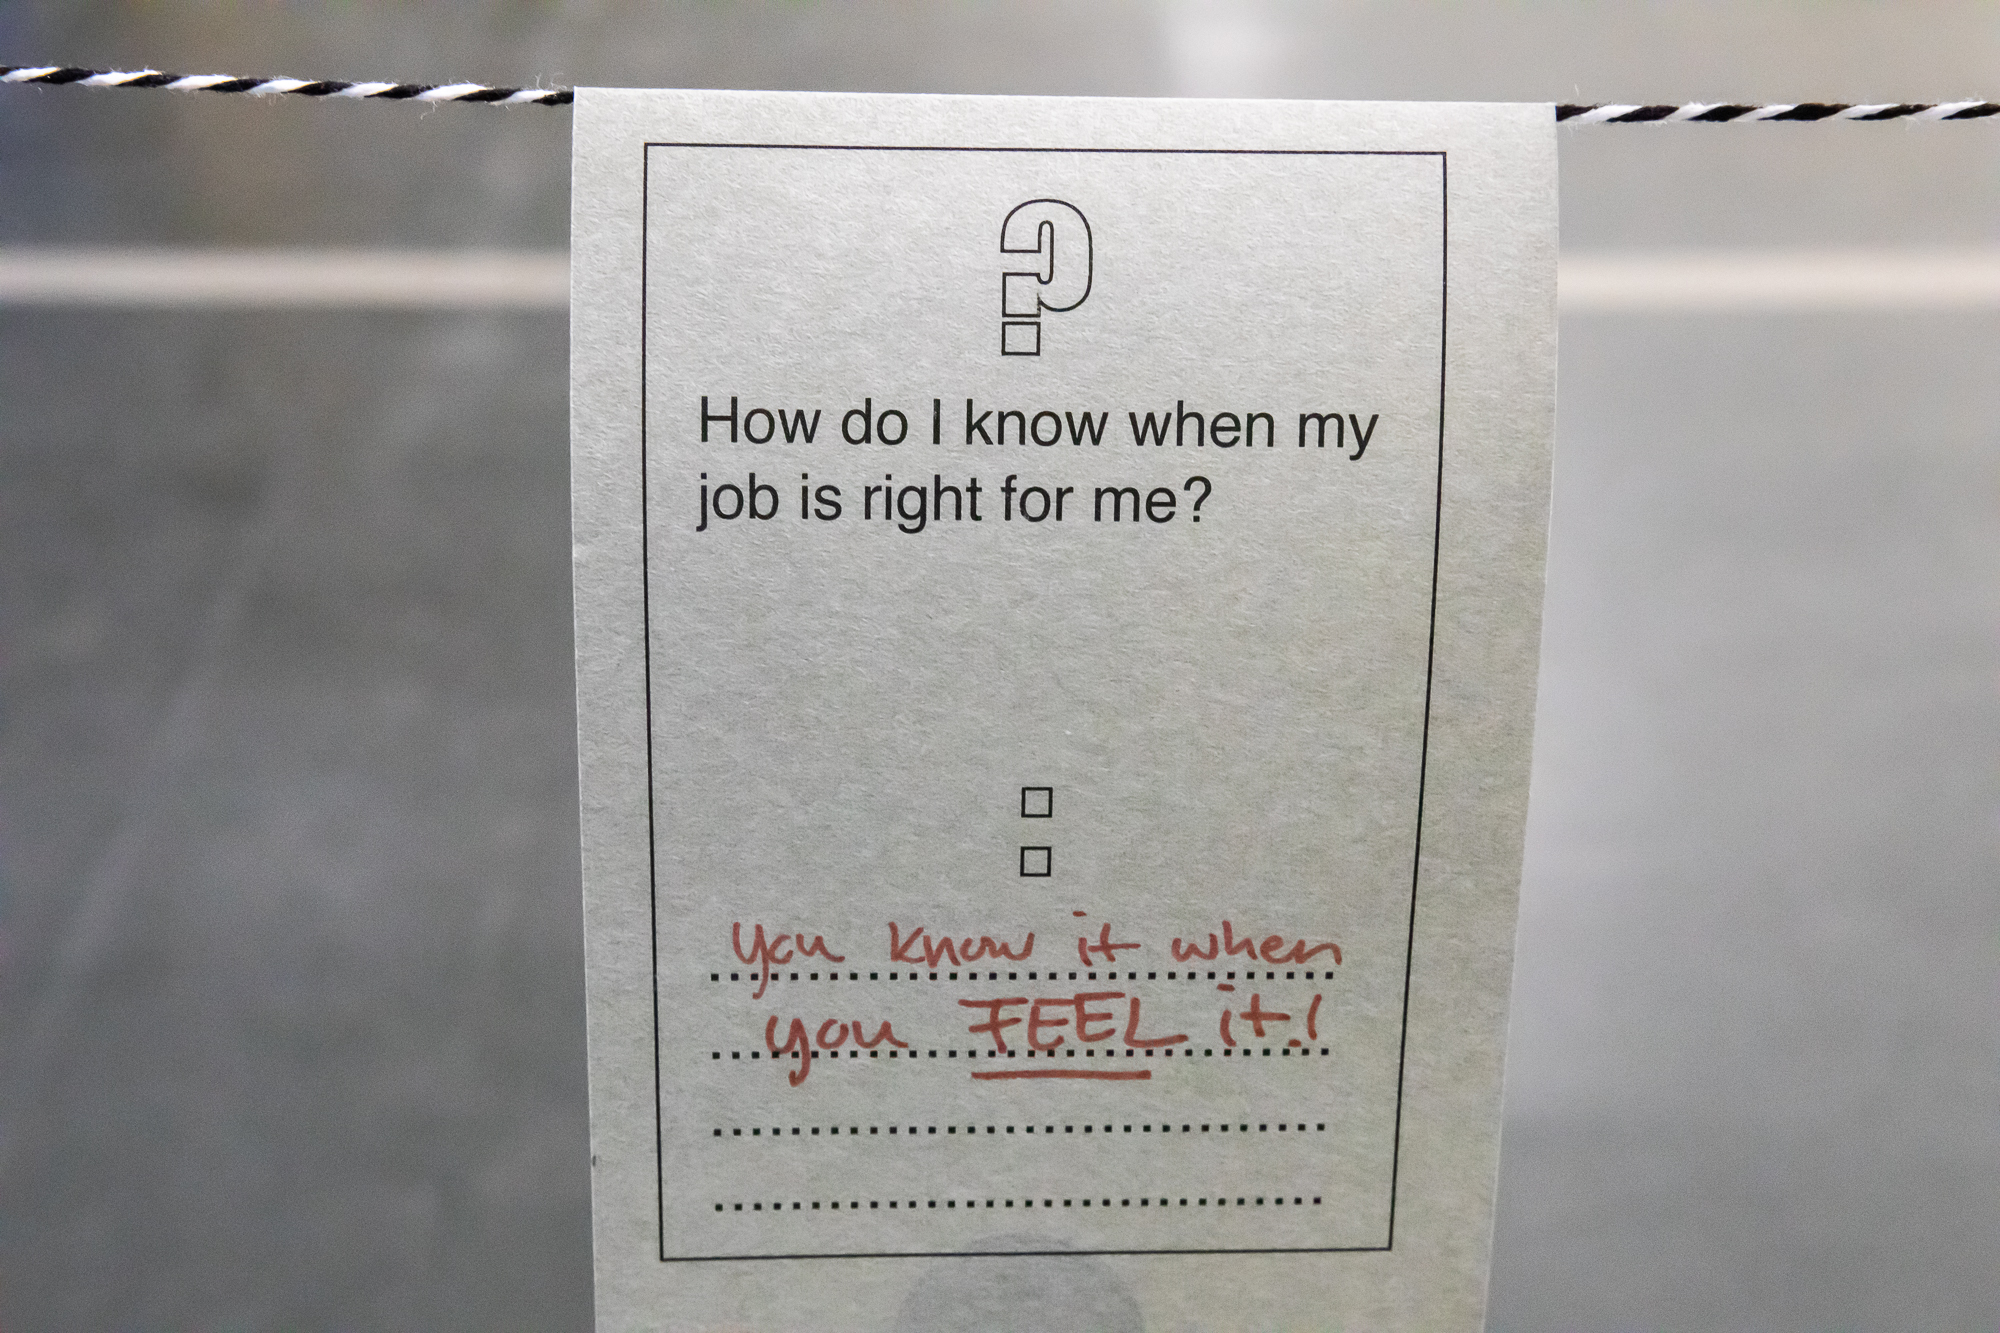 ?
How do I know when my
job is right for me?
:
you know it when
you FEEL it!